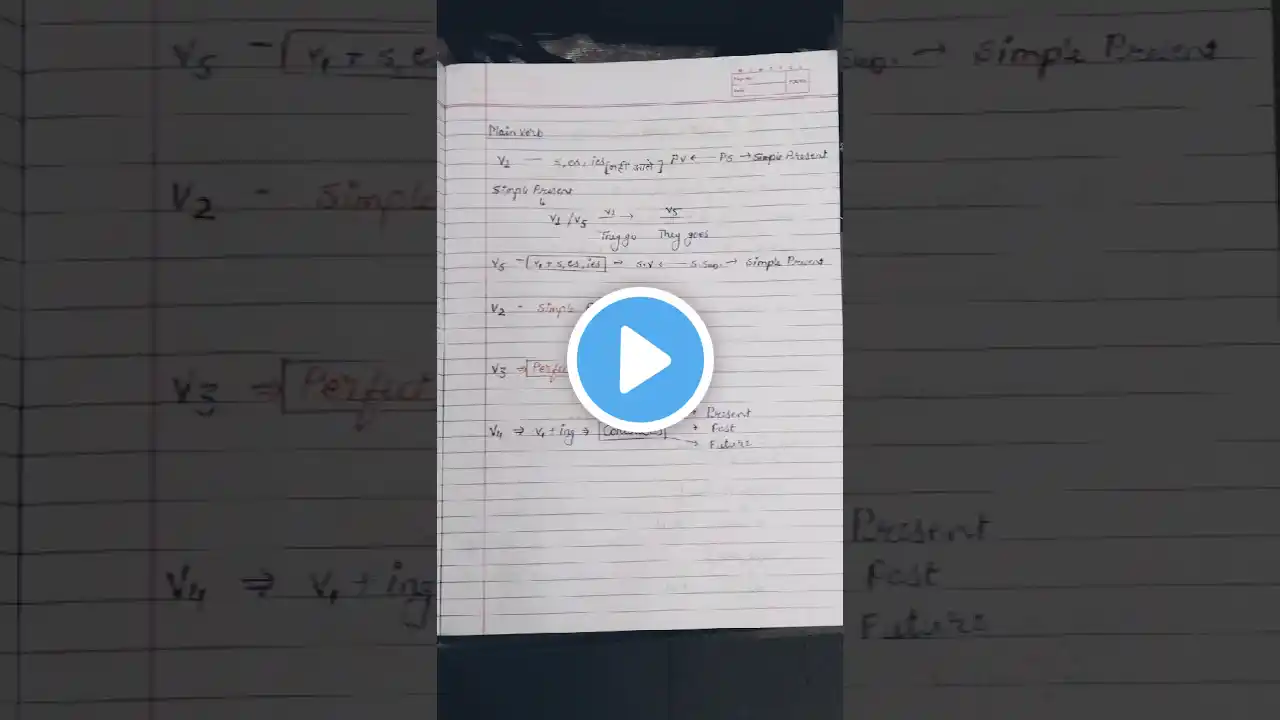 Main Verb
V1 — s, es, ies [नहीं आते] PV ← PS → Simple Present
Simple Present
V1 / V5 V1 → V5
They go They goes
V5 - V1 + s, es, ies → S.V. S.Sub. → Simple Present
V2 - Simple
V3 ⇒ Perfect
V4 ⇒ V1 + ing → Continuous
→ Present
→ Past
→ Future